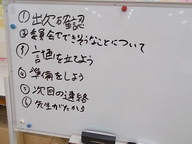 ① 出欠確認
② 委員会でできそうなことについて
③ 計画を立てよう
④ 準備をしよう
⑤ 次回の連絡
⑥ 先生がたから